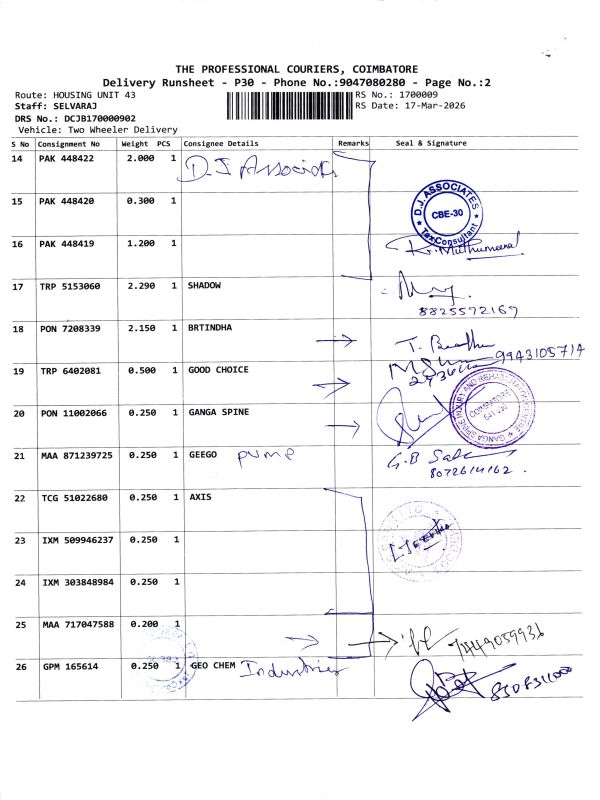 THE PROFESSIONAL COURIERS, COIMBATORE
Delivery Runsheet - P30 - Phone No.:9047080280 - Page No.:2
Route: HOUSING UNIT 43 RS No.: 1700009
Staff: SELVARAJ RS Date: 17-Mar-2026
DRS No.: DCJB170000902
Vehicle: Two Wheeler Delivery
S No Consignment No Weight PCS Consignee Details Remarks Seal & Signature
14 PAK 448422 2.000 1 D.J Associates
15 PAK 448420 0.300 1
D.J. ASSOCIATES
CBE-30
Tax Consultant
16 PAK 448419 1.200 1
17 TRP 5153060 2.290 1 SHADOW
8825572169
18 PON 7208339 2.150 1 BRTINDHA
9943105714
19 TRP 6402081 0.500 1 GOOD CHOICE
20 PON 11002066 0.250 1 GANGA SPINE
GANGA SPINE INJURY AND REHABILITATION CENTRE
COIMBATORE
21 MAA 871239725 0.250 1 GEEGO PUMP
8072614162.
22 TCG 51022680 0.250 1 AXIS
23 IXM 509946237 0.250 1
24 IXM 303848984 0.250 1
25 MAA 717047588 0.200 1
7449059936
26 GPM 165614 0.250 1 GEO CHEM Industries